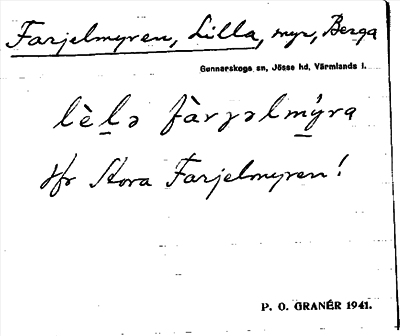 Farjelmyren, Lilla, myr, Berga
Gunnarskogs sn, Jösse hd, Värmlands l.
lèlə fàrjəlmýra
Jfr Stora Farjelmyren!
P. O. GRANÉR 1941.